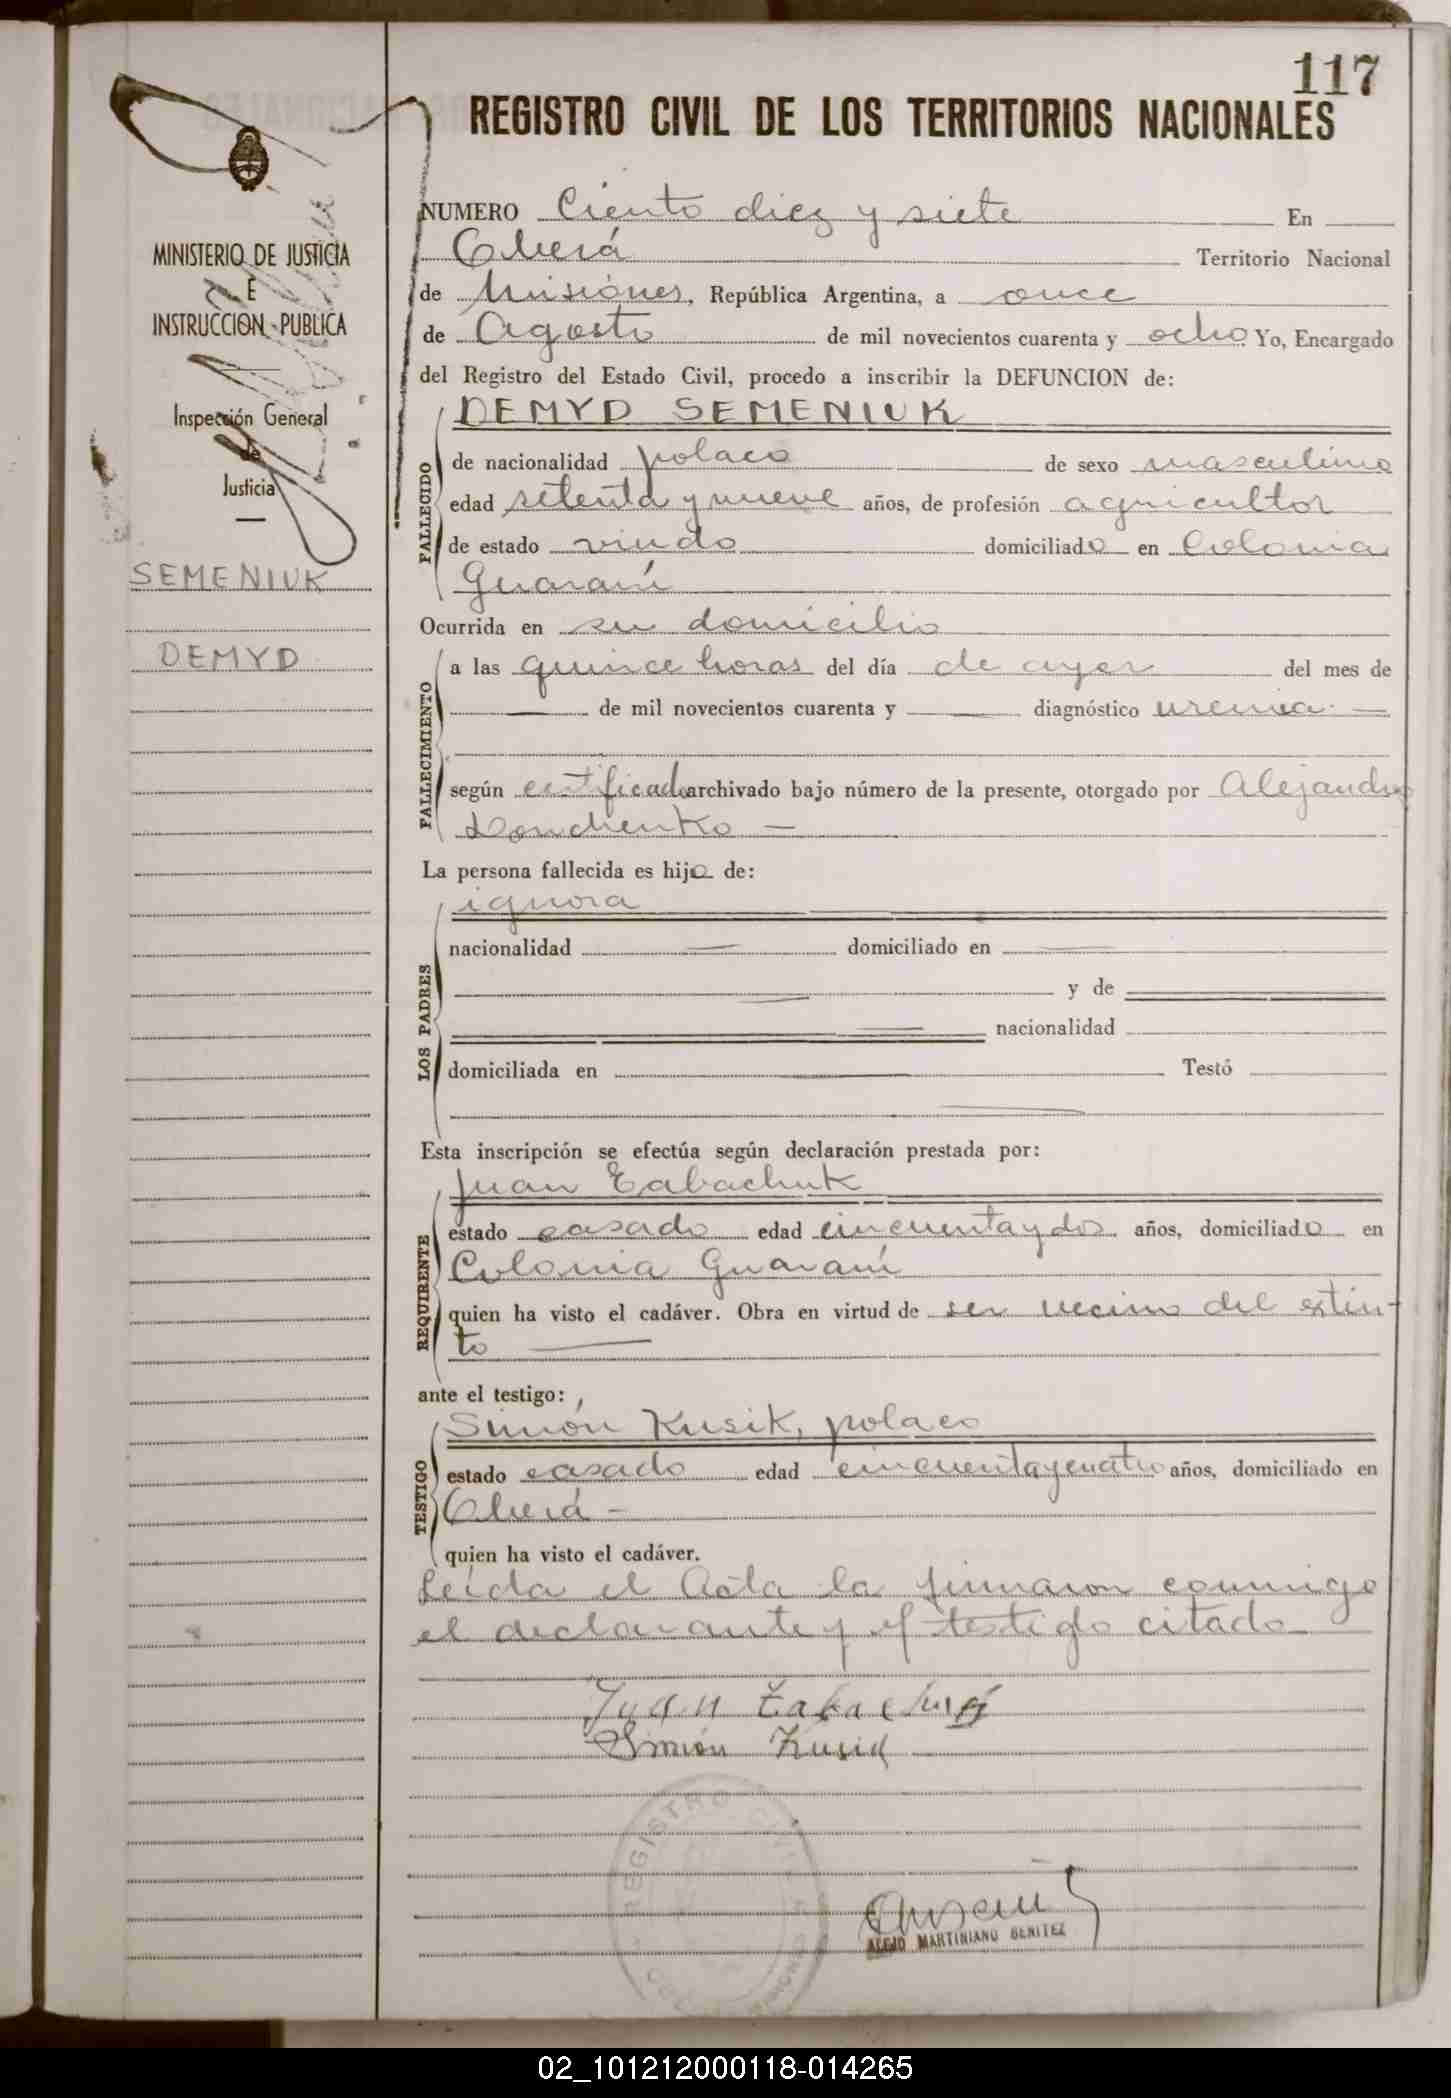 117
REGISTRO CIVIL DE LOS TERRITORIOS NACIONALES
MINISTERIO DE JUSTICIA
E
INSTRUCCION PUBLICA
Inspección General
de
Justicia
SEMENIUK
DEMYD
NUMERO Ciento diez y siete En
Oberá Territorio Nacional
de Misiones, República Argentina, a once
de Agosto de mil novecientos cuarenta y ocho Yo, Encargado
del Registro del Estado Civil, procedo a inscribir la DEFUNCION de:
DEMYD SEMENIUK
FALLECIDO
de nacionalidad polaco de sexo masculino
edad setenta y nueve años, de profesión agricultor
de estado viudo domiciliado en Colonia
Guaraní
Ocurrida en su domicilio
FALLECIMIENTO
a las quince horas del día de ayer del mes de
— de mil novecientos cuarenta y — diagnóstico uremia —
según certificado archivado bajo número de la presente, otorgado por Alejandro
—
La persona fallecida es hijo de:
LOS PADRES
ignora
nacionalidad — domiciliado en —
— y de
— nacionalidad
domiciliada en — Testó
—
Esta inscripción se efectúa según declaración prestada por:
REQUIRENTE
Juan Tabachuk
estado casado edad cincuenta y dos años, domiciliado en
Colonia Guaraní
quien ha visto el cadáver. Obra en virtud de ser vecino del extin-
to —
ante el testigo:
TESTIGO
Simón Kusik, polaco
estado casado edad cincuenta y cuatro años, domiciliado en
Oberá —
quien ha visto el cadáver.
Leída el Acta la firmaron conmigo
el declarante y el testigo citado
Juan
Simón
REGISTRO CIVIL
ALEJO MARTINIANO BENITEZ
02_101212000118-014265